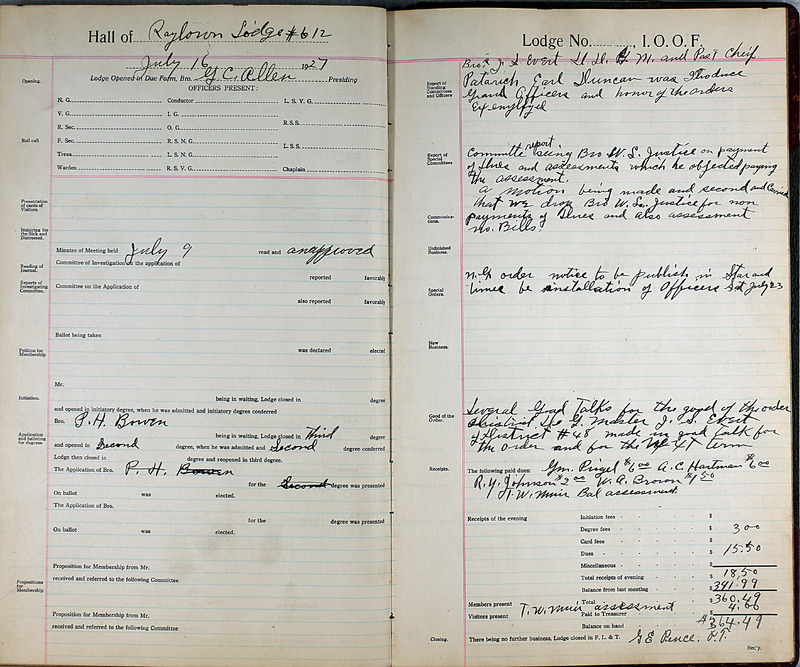 Hall of Raytown Lodge #612
July 16 1927
Opening.
Lodge Opened in Due Form, Bro. G.C. Allen Presiding
OFFICERS PRESENT:
N. G. Conductor L. S. V. G.
V. G. I. G.
R. Sec. O. G. R.S.S.
Roll call.
F. Sec. R. S. N. G.
L.S.S.
Treas. L. S. N. G.
Warden R. S. V. G. Chaplain
Presentation of cards of Visitors.
Inquiring for the Sick and Distressed.
Minutes of Meeting held July 9 read and
Reading of Journal.
Committee of Investigation on the application of
reported favorably
Reports of Investigating Committee.
Committee on the Application of
also reported favorably
Ballot being taken
Petition for Membership
was declared elected
Mr.
Initiation.
being in waiting, Lodge closed in degree
and opened in initiatory degree, when he was admitted and initiatory degree conferred
Bro. P. H. Bowen
Application and balloting for degrees
being in waiting, Lodge closed in Third degree
and opened in Second degree, when he was admitted and Second degree conferred
Lodge then closed in degree and reopened in third degree.
The Application of Bro. P. H. Bowen
for the Second degree was presented
On ballot was elected.
The Application of Bro.
for the degree was presented
On ballot was elected.
Proposition for Membership from Mr.
Propositions for Membership
received and referred to the following Committee
Proposition for Membership from Mr.
received and referred to the following Committee
Lodge No. , I. O. O. F.
Bro J. S. Evert D. D. G M. and Past Cheif
Report of Standing Committees and Officers
Patarich Earl Duncan was Itroduce
Grand Officers and honor of the orders
Exemplfyed
Report of Special Committees
Committe report seeing Bro W. S. Justice on payment
of Dues and assessments which he objected paying
the assessment.
a motion being made and second and Carried
that we drop Bro W. S. Justice for non
Communications.
payments of Dues and also assessment
no. Bills.
Unfinished Business.
N.G order notice to be publish in Star and
Special Orders.
times be installation of Officers Sat July 23
New Business.
Several Good Talks for the good of the order
Good of the Order.
District De G. Master J. S. Evert
of District #48 made in good talk for
the order and for the next term
Receipts.
The following paid dues: Gm. Pingel $6.00 A.C Hartman $6.00
R. Y. Johnson $2.00 W. A. Brown $1.50
T. W. Muir Bal assessment.
Receipts of the evening Initiation fees $
Degree fees $ 3 00
Card fees $
Dues $ 15.50
Miscellaneous $
Total receipts of evening $ 18,50
Balance from last meeting $ 341.99
Members present Total $ 360.49
Visitors present T. W. Muir assessment Paid to Treasurer $ 4.00
Balance on hand $ 364.49
Closing.
There being no further business, Lodge closed in F. L. & T. G E Pence. P.T.
Sec'y.